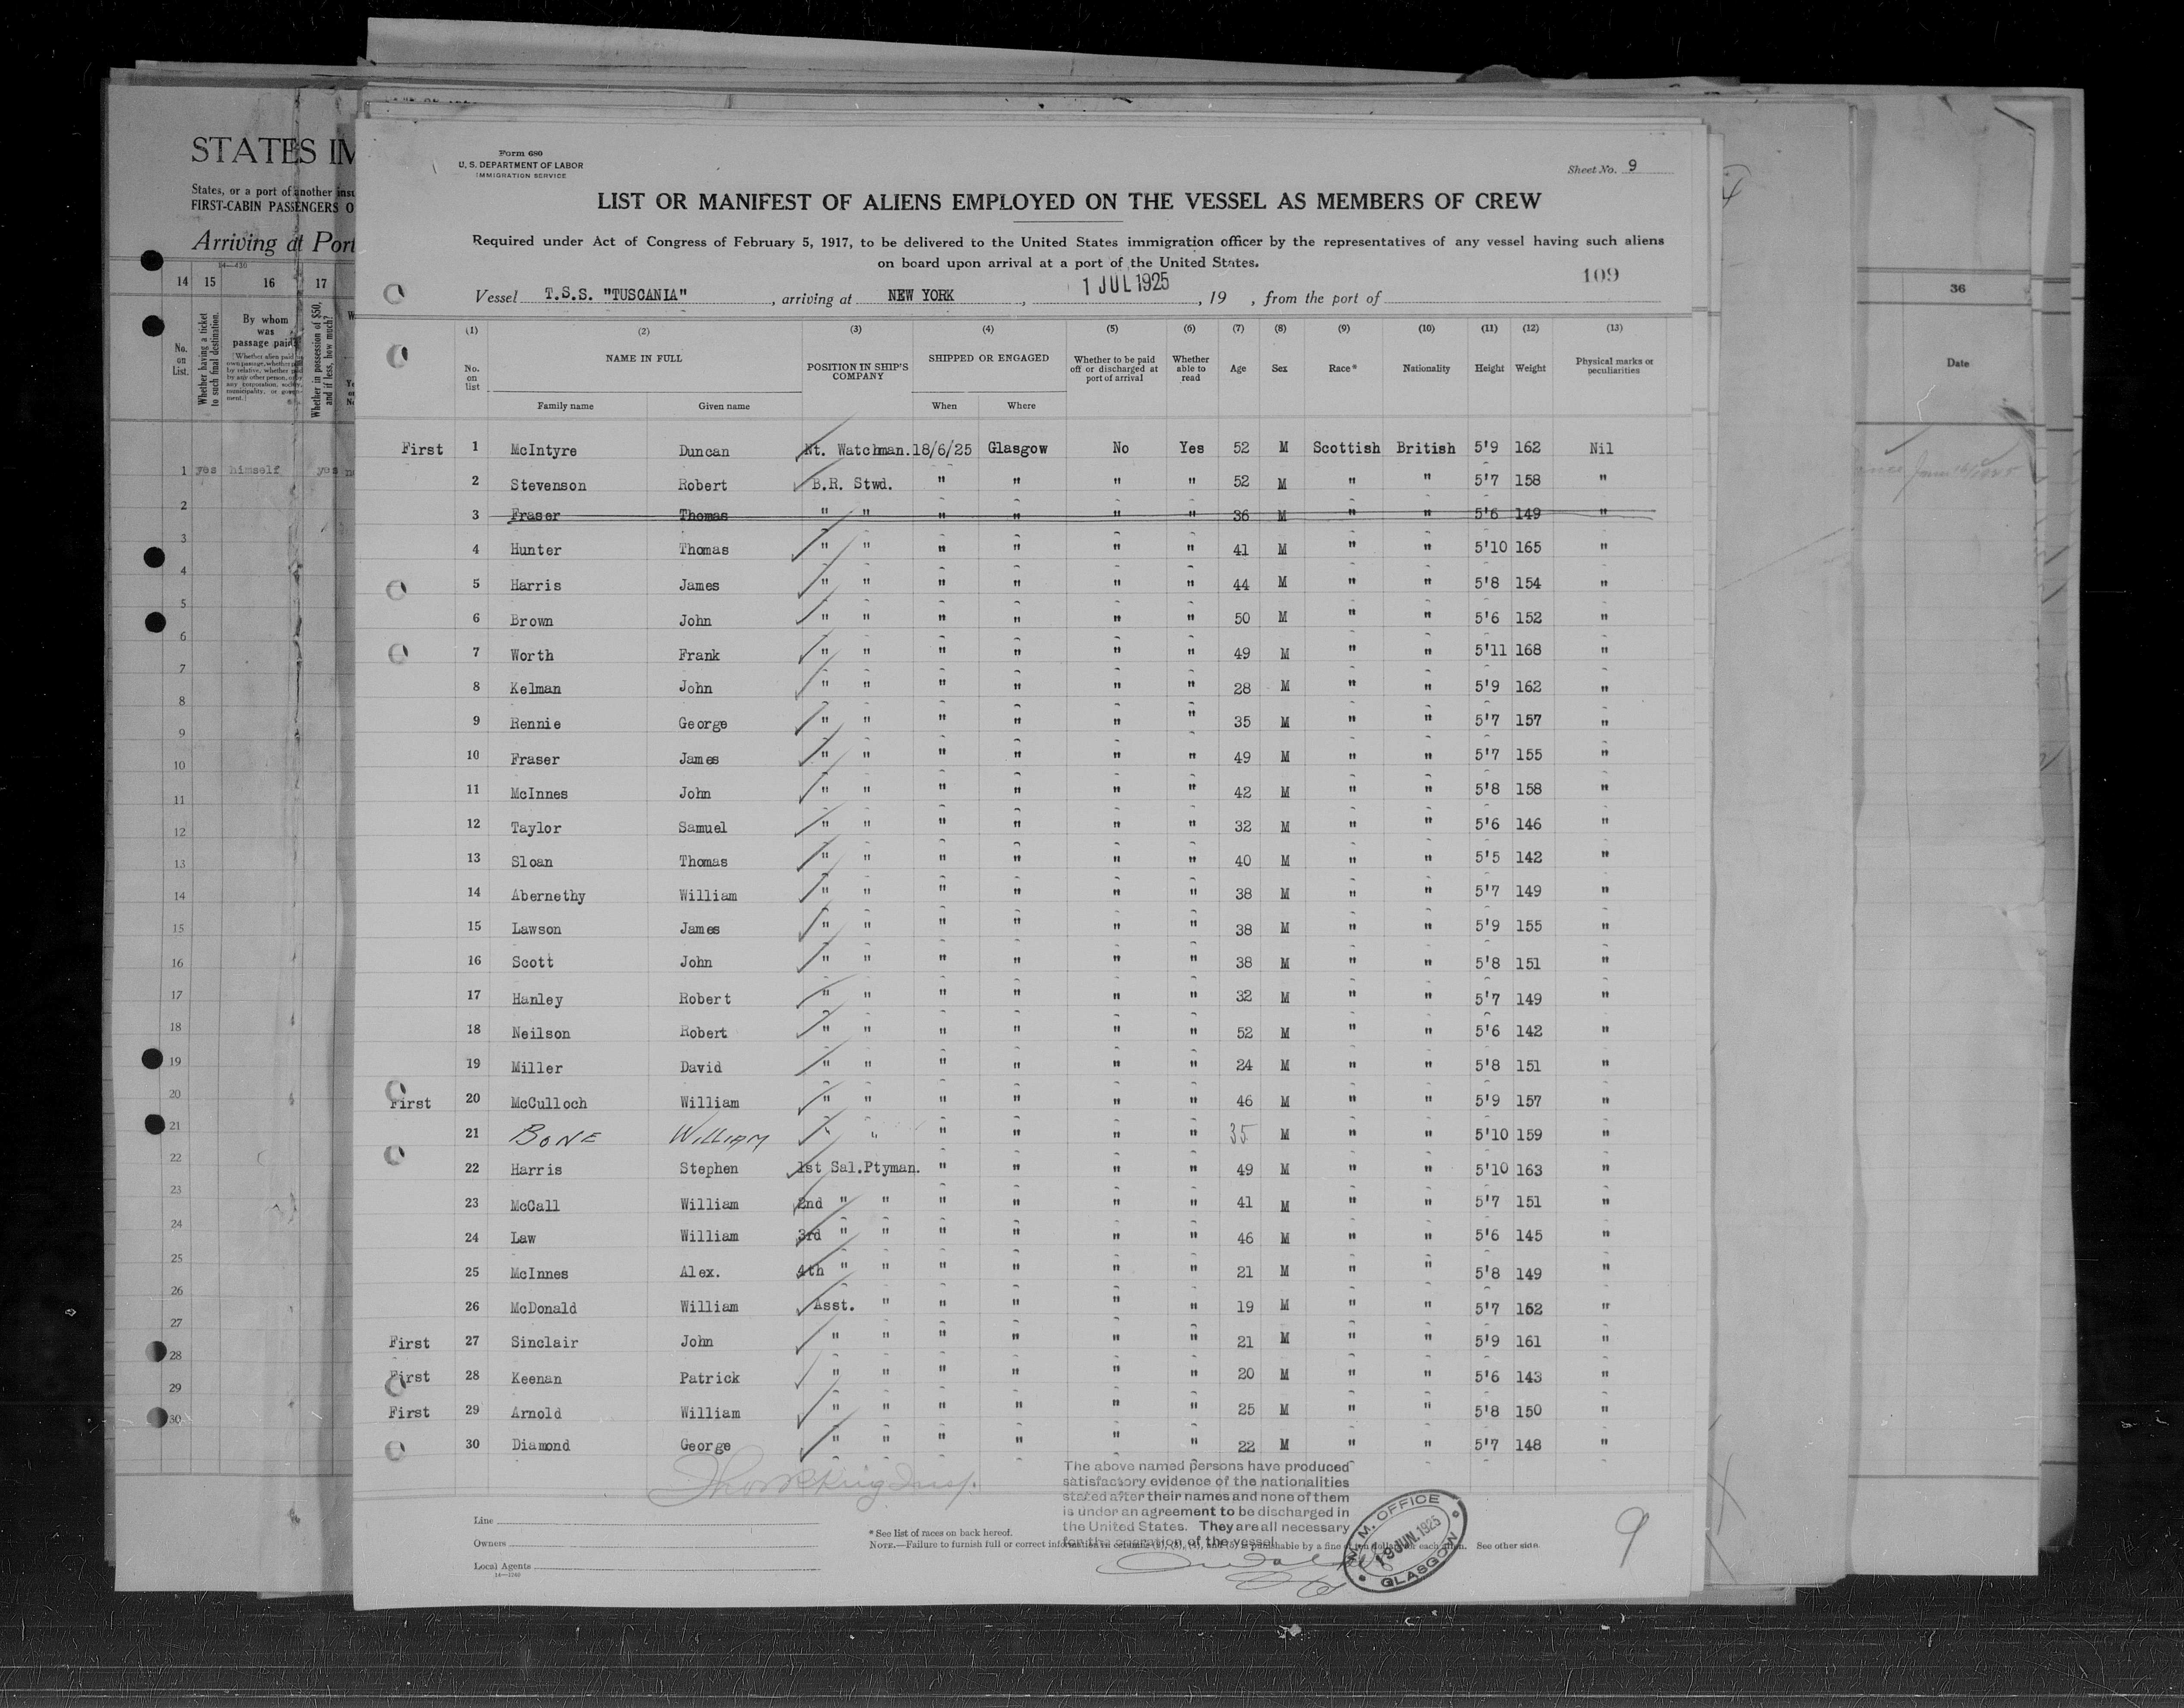 Form 680
U. S. DEPARTMENT OF LABOR
IMMIGRATION SERVICE
Sheet No. 9
LIST OR MANIFEST OF ALIENS EMPLOYED ON THE VESSEL AS MEMBERS OF CREW
Required under Act of Congress of February 5, 1917, to be delivered to the United States immigration officer by the representatives of any vessel having such aliens
on board upon arrival at a port of the United States.
109
Vessel T.S.S. "TUSCANIA", arriving at NEW YORK, 1 JUL 1925, 19 , from the port of
(1) (2) (3) (4) (5) (6) (7) (8) (9) (10) (11) (12) (13)
No. on list NAME IN FULL Family name Given name POSITION IN SHIP'S COMPANY SHIPPED OR ENGAGED When Where Whether to be paid off or discharged at port of arrival Whether able to read Age Sex Race* Nationality Height Weight Physical marks or peculiarities
First 1 McIntyre Duncan Nt. Watchman. 18/6/25 Glasgow No Yes 52 M Scottish British 5'9 162 Nil
2 Stevenson Robert B.R. Stwd. " " " " 52 M " " 5'7 158 "
3 Fraser Thomas " " " " " " 36 M " " 5'6 149 "
4 Hunter Thomas " " " " " " 41 M " " 5'10 165 "
5 Harris James " " " " " " 44 M " " 5'8 154 "
6 Brown John " " " " " " 50 M " " 5'6 152 "
7 Worth Frank " " " " " " 49 M " " 5'11 168 "
8 Kelman John " " " " " " 28 M " " 5'9 162 "
9 Rennie George " " " " " " 35 M " " 5'7 157 "
10 Fraser James " " " " " " 49 M " " 5'7 155 "
11 McInnes John " " " " " " 42 M " " 5'8 158 "
12 Taylor Samuel " " " " " " 32 M " " 5'6 146 "
13 Sloan Thomas " " " " " " 40 M " " 5'5 142 "
14 Abernethy William " " " " " " 38 M " " 5'7 149 "
15 Lawson James " " " " " " 38 M " " 5'9 155 "
16 Scott John " " " " " " 38 M " " 5'8 151 "
17 Hanley Robert " " " " " " 32 M " " 5'7 149 "
18 Neilson Robert " " " " " " 52 M " " 5'6 142 "
19 Miller David " " " " " " 24 M " " 5'8 151 "
First 20 McCulloch William " " " " " " 46 M " " 5'9 157 "
21 BONE WILLIAM " " " " " " 35 M " " 5'10 159 "
22 Harris Stephen 1st Sal.Ptyman. " " " " 49 M " " 5'10 163 "
23 McCall William 2nd " " " " " " 41 M " " 5'7 151 "
24 Law William 3rd " " " " " " 46 M " " 5'6 145 "
25 McInnes Alex. 4th " " " " " " 21 M " " 5'8 149 "
26 McDonald William Asst. " " " " " 19 M " " 5'7 152 "
First 27 Sinclair John " " " " " " 21 M " " 5'9 161 "
First 28 Keenan Patrick " " " " " " 20 M " " 5'6 143 "
First 29 Arnold William " " " " " " 25 M " " 5'8 150 "
30 Diamond George " " " " " " 22 M " " 5'7 148 "
The above named persons have produced
satisfactory evidence of the nationalities
stated after their names and none of them
is under an agreement to be discharged in
the United States. They are all necessary
for the operation of the vessel
Line
Owners
Local Agents
14—1240
* See list of races on back hereof.
NOTE.—Failure to furnish full or correct information in columns is punishable by a fine of ten dollars for each alien. See other side.
M. M. OFFICE
19 JUN. 1925
GLASGOW
9
STATES IM
States, or a port of another insu
FIRST-CABIN PASSENGERS O
Arriving at Port
14—430
14 15 16 17
No. on List.
Whether having a ticket to such final destination.
By whom was passage paid?
Whether in possession of $50, and if less, how much?
1 yes himself yes
2
3
4
5
6
7
8
9
10
11
12
13
14
15
16
17
18
19
20
21
22
23
24
25
26
27
28
29
30
36
Date